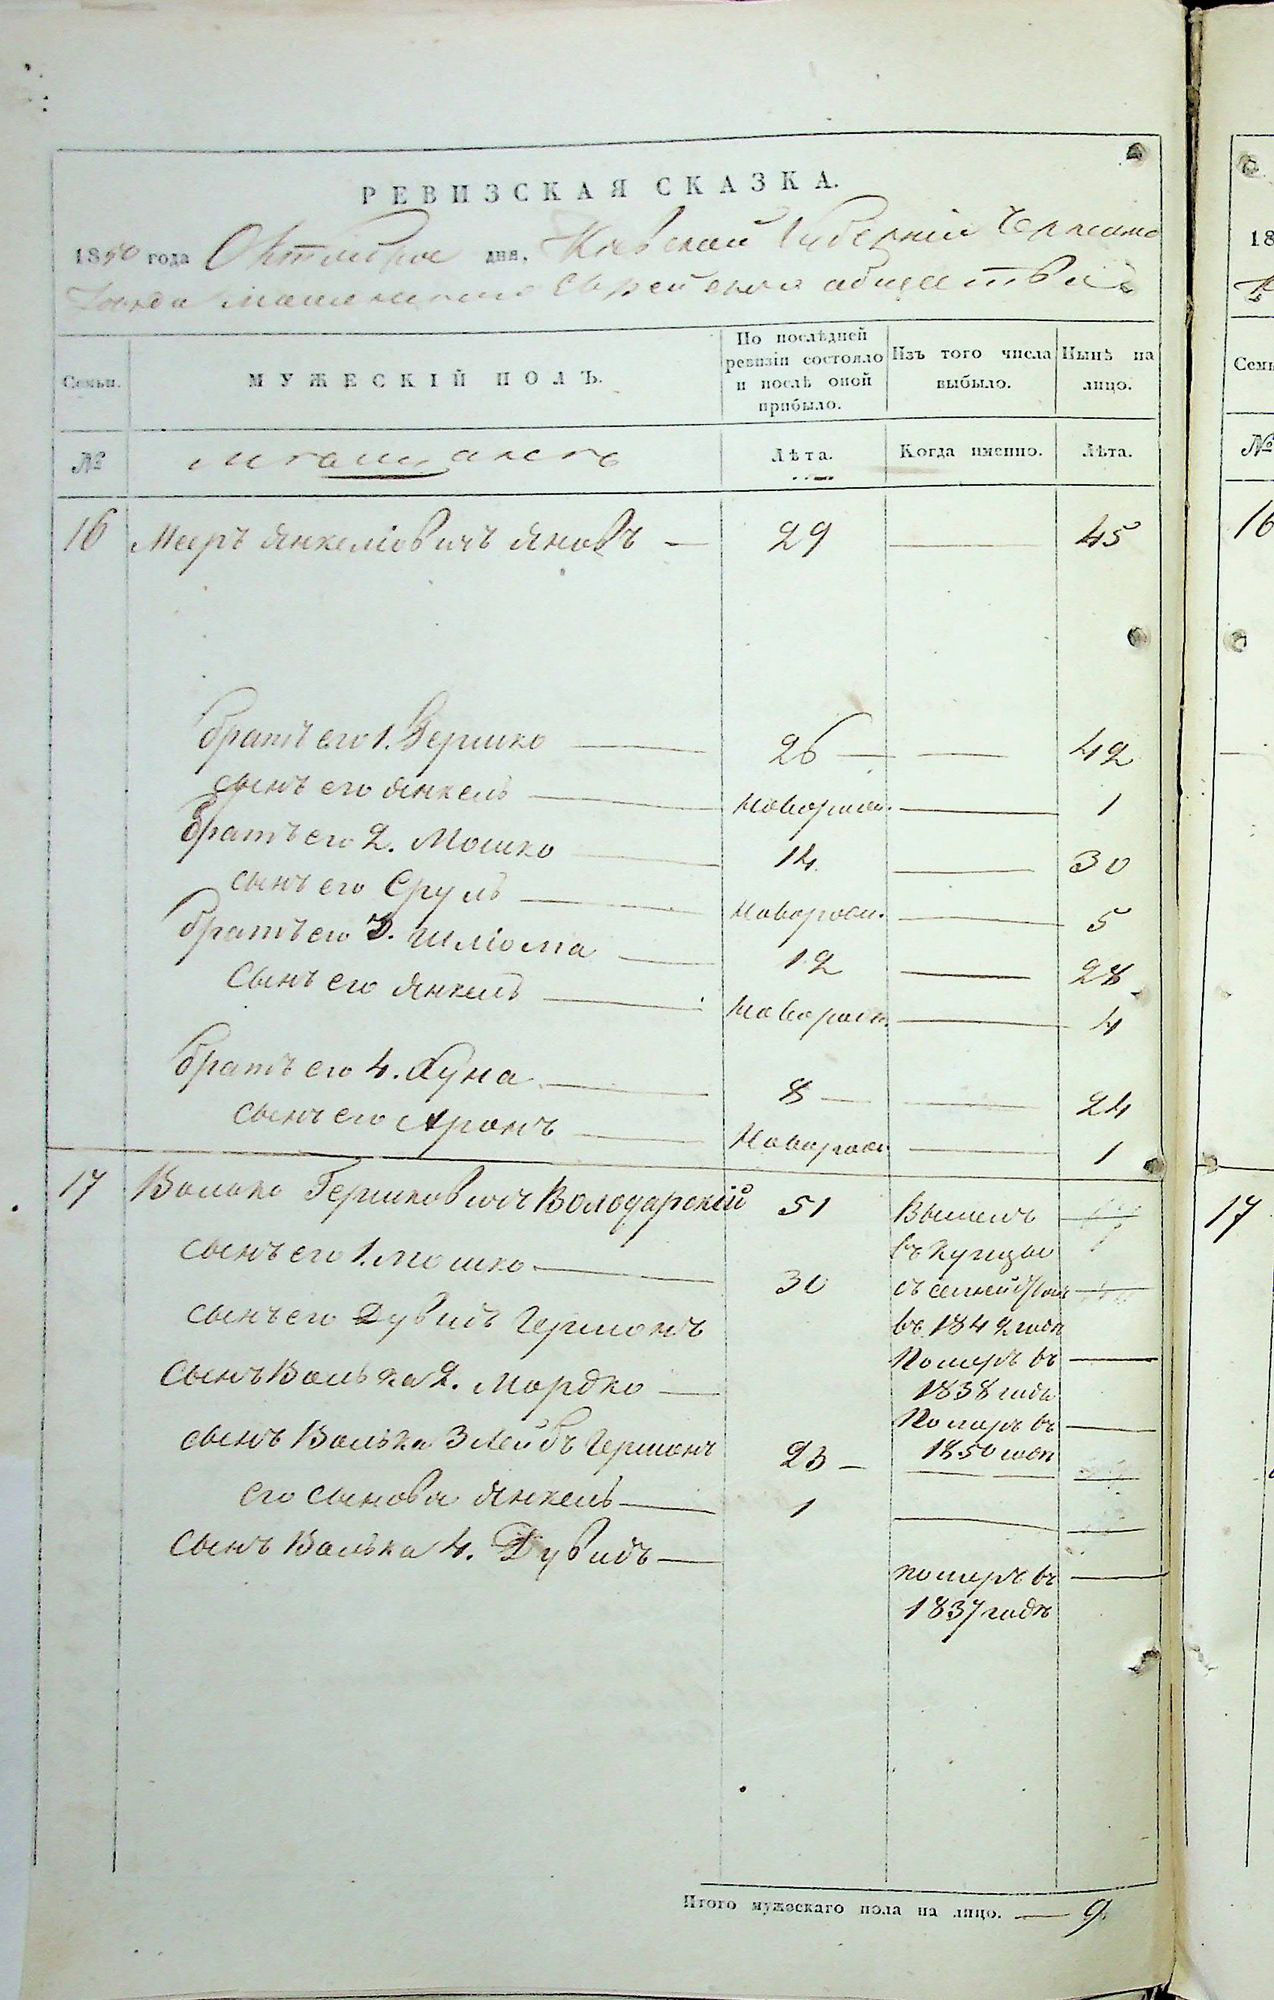 РЕВИЗСКАЯ СКАЗКА.
1850 года Октября дня, Кіевской Губерніи Черкаскаго
Уезда Еврейскаго общества
Семьи.
МУЖЕСКІЙ ПОЛЪ.
По послѣдней ревизіи состояло и послѣ оной прибыло.
Изъ того числа выбыло.
Нынѣ на лицо.
№
мещанъ
Лѣта.
Когда именно.
Лѣта.
16 Мееръ Янкеліовичъ Яновъ — 29 — 45
братъ его 1. Гершко — 26 — 42
сынъ его Янкель — Новорожд. — 1
братъ его 2. Мошко — 14 — 30
сынъ его Сруль — Новорожд. — 5
братъ его 3. Шліома — 12 — 28
сынъ его Янкель — Новорожд. — 4
братъ его 4. Хуна — 8 — 24
сынъ его Аронъ — Новорожд — 1
17 Волько Гершковичъ Володарскій 51 Вышелъ
въ купцы
сынъ его 1. Мошко — 30 съ семействомъ
сынъ его Дувидъ Гершонъ въ 1842 годѣ
Померъ въ —
сынъ Волька 2. Мордко — 1838 годѣ
Померъ въ —
сынъ Волька 3 Лейбъ Гершонъ 23 — 1850 годѣ
его сыновья Янкель — 1 —
сынъ Волька 4. Дувидъ —
померъ въ —
1837 годѣ
Итого мужескаго пола на лицо. — 9.
18
Семь
№
16
17